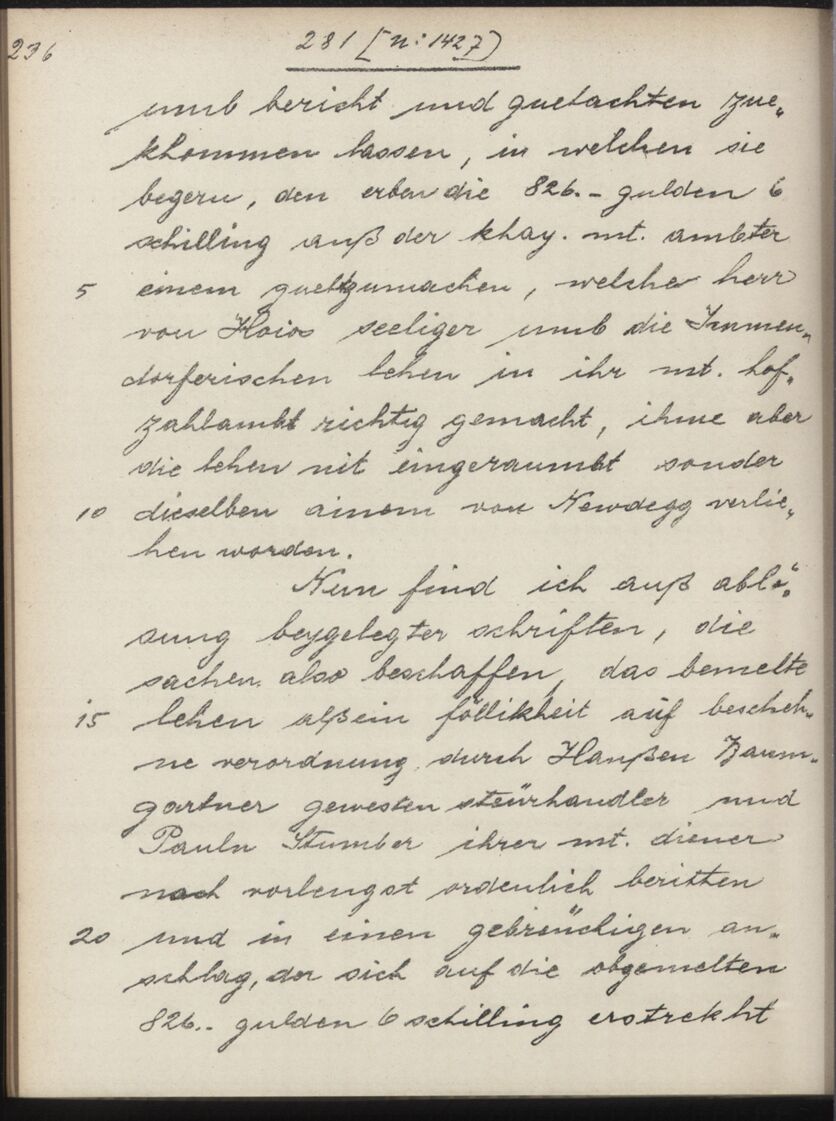 236
281 [n: 1427)
umb bericht und guetachten zue„
khommen lassen, in welchen sie
begern, den erben die 826.- gulden 6
schilling auß der khay. mt. ambter
5 einem guetzumachen, welche herr
von Hoios seeliger umb die Immen„
dorferischen lehen in ihr mt. hof„
zahlambt richtig gemacht, ihme aber
die lehen nit eingeraumbt sonder
10 dieselben ainem von Newdegg verlie„
hen worden.
Nun find ich auß ablö„
sung beygelegter schriften, die
sachen also beschaffen, das bemelte
15 lehen alß ein föllikheit auf bescheh„
ne verordnung durch Hanßen Baum„
gartner gewesten steürhandler und
Pauln Stumber ihrer mt. diener
nach vorlengst ordenlich beritten
20 und in einen gebreüchigen an„
schlag, der sich auf die obgemelten
826.- gulden 6 schilling erstrekht